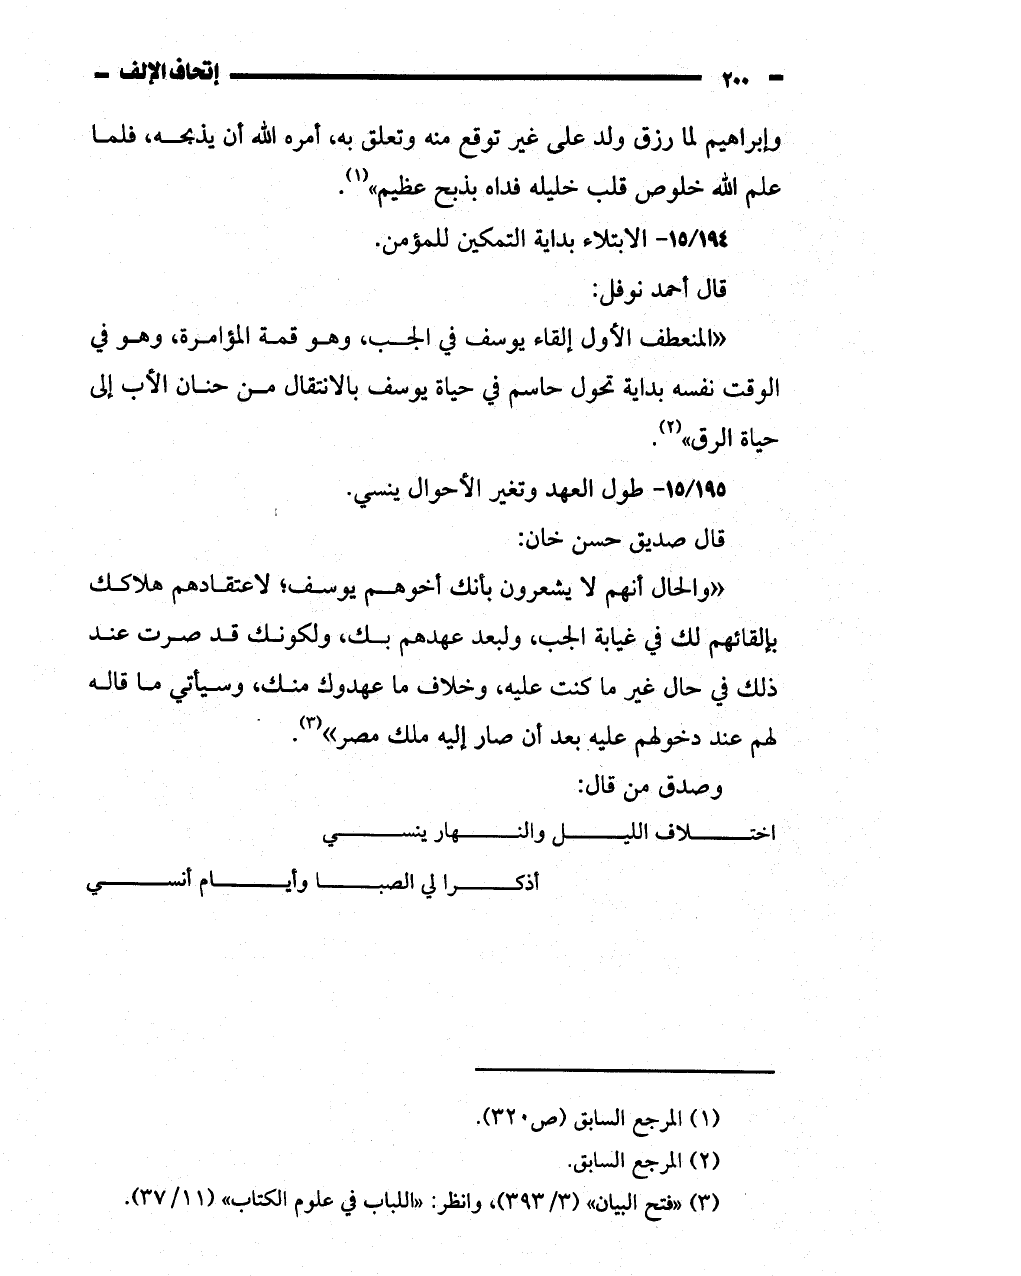 ٢٠٠ إتحاف الإلف
وإبراهيم لما رزق ولد على غير توقع منه وتعلق به، أمره الله أن يذبحه، فلما
علم الله خلوص قلب خليله فداه بذبح عظيم»(١).
١٥/١٩٤- الابتلاء بداية التمكين للمؤمن.
قال أحمد نوفل:
«المنعطف الأول إلقاء يوسف في الجب، وهو قمة المؤامرة، وهو في
الوقت نفسه بداية تحول حاسم في حياة يوسف بالانتقال من حنان الأب إلى
حياة الرق»(٢).
١٥/١٩٥- طول العهد وتغير الأحوال ينسي.
قال صديق حسن خان:
«والحال أنهم لا يشعرون بأنك أخوهم يوسف؛ لاعتقادهم هلاكك
بإلقائهم لك في غيابة الجب، ولبعد عهدهم بك، ولكونك قد صرت عند
ذلك في حال غير ما كنت عليه، وخلاف ما عهدوك منك، وسيأتي ما قاله
لهم عند دخولهم عليه بعد أن صار إليه ملك مصر»(٣).
وصدق من قال:
اختلاف الليل والنهار ينسي
أذكرا لي الصبا وأيام أنسي
(١) المرجع السابق (ص٣٢٠).
(٢) المرجع السابق.
(٣) «فتح البيان» (٣/ ٣٩٣)، وانظر: «اللباب في علوم الكتاب» (١١/ ٣٧).